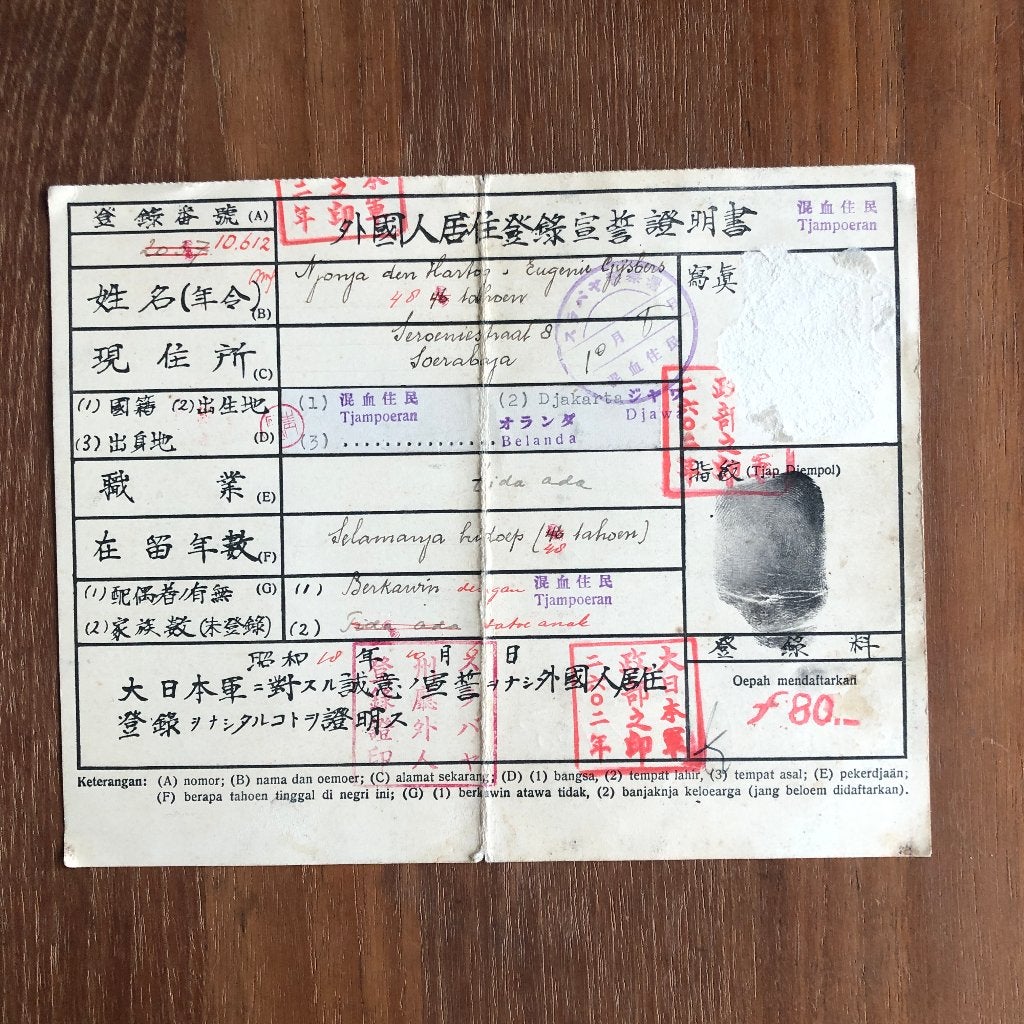 登錄番號 (A)
20.5 7 10.612
外國人居住登錄宣誓證明書
混血住民
Tjampoeran
姓名(年令) (B)
Njonja den Hartog - Eugenie Gijsbers
48 46 tahoen
寫眞
現住所 (C)
Seroeniestraat 8
Soerabaja
(1) 國籍 (2) 出生地
(3) 出身地 (D)
(1) 混血住民
Tjampoeran
(2) Djakarta ジャワ
Djawa
(3) オランダ
Belanda
職業 (E)
tida ada
指紋 (Tjap Djempol)
在留年數 (F)
Selamanja hidoep (46 tahoen)
48
(1) 配偶者ノ有無 (G)
(2) 家族數(未登錄)
(1) Berkawin dengan 混血住民
Tjampoeran
(2) Tida ada satoe anak
昭和 18 年 10 月 日
大日本軍ニ對スル誠意ノ宣誓ヲナシ外國人居住
登錄ヲナシタルコトヲ證明ス
登錄料
Oepah mendaftarkan
f 80.-
大日本軍
政部之印
二六〇二年
スラバヤ
州廳外人
登錄證印
10月
混血住民
Keterangan: (A) nomor; (B) nama dan oemoer; (C) alamat sekarang; (D) (1) bangsa, (2) tempat lahir, (3) tempat asal; (E) pekerdjaän;
(F) berapa tahoen tinggal di negri ini; (G) (1) berkawin atawa tidak, (2) banjaknja keloearga (jang beloem didaftarkan).